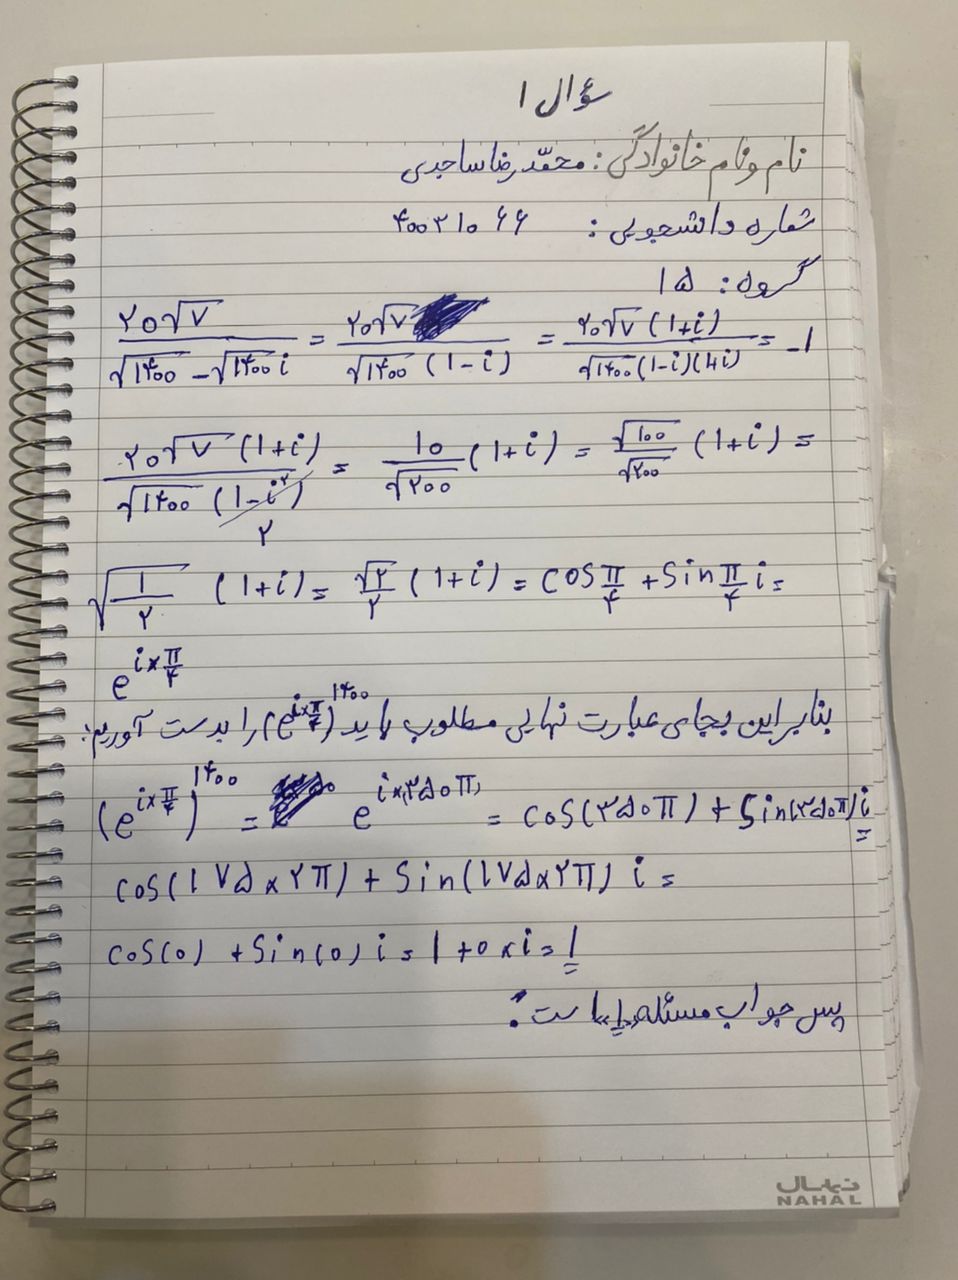 سؤال ۱
نام و نام خانوادگی: محمدرضا ساجدی
شماره دانشجویی: ۴۰۰۲۱۰۶۶
گروه: ۱۵
۲۰√۷ / (√۱۴۰۰ - √۱۴۰۰ i) = ۲۰√۷ / (√۱۴۰۰ (۱-i)) = ۲۰√۷ (۱+i) / (√۱۴۰۰ (۱-i)(۱+i)) = -۱
۲۰√۷ (۱+i) / (√۱۴۰۰ (۱-i²)) ۲ = ۱۰/√۲۰۰ (۱+i) = √۱۰۰/√۲۰۰ (۱+i) =
√(۱/۲) (۱+i) = √۲/۲ (۱+i) = cos π/۴ + sin π/۴ i =
e^(i×π/۴)
بنابراین بجای عبارت نهایی مطلوب باید (e^(i×π/۴))^۱۴۰۰ را بدست آوریم:
(e^(i×π/۴))^۱۴۰۰ = e^(i×(۳۵۰π)) = cos(۳۵۰π) + sin(۳۵۰π) i =
cos(۱۷۵×۲π) + sin(۱۷۵×۲π) i =
cos(۰) + sin(۰) i = ۱ + ۰×i = ۱
پس جواب مسئله «۱» است.
نهال
NAHAL